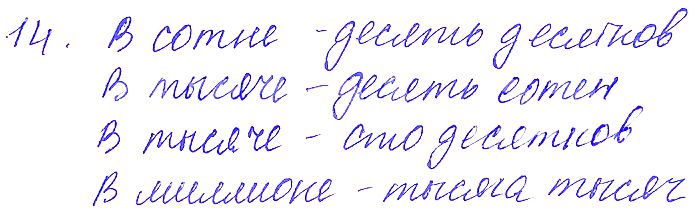 14. В сотне - десять десятков
В тысяче - десять сотен
В тысяче - сто десятков
В миллионе - тысяча тысяч